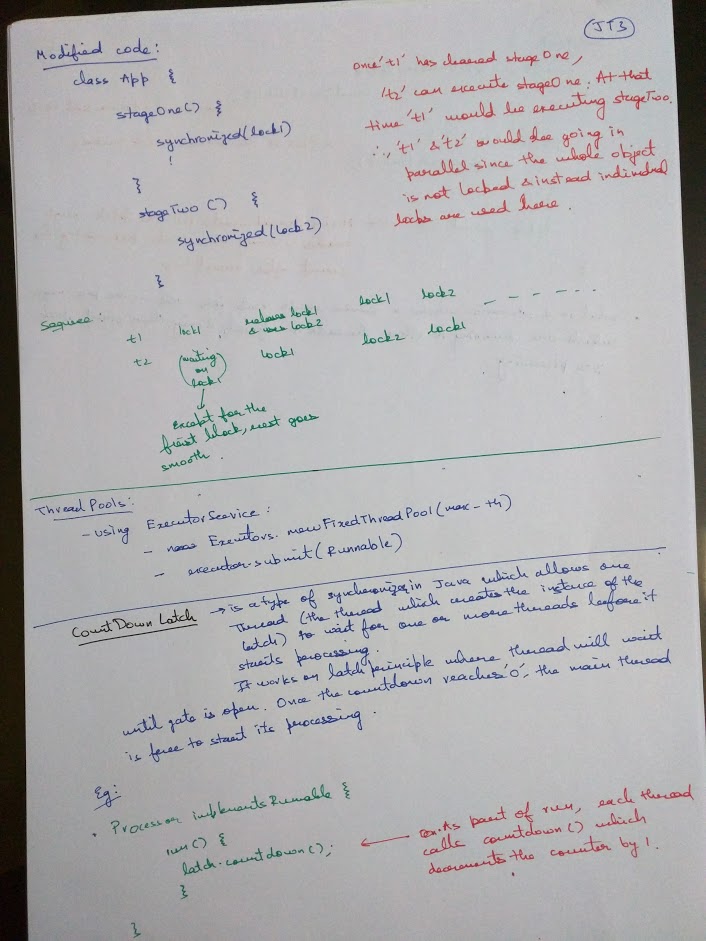 JT3
Modified code:
class App {
stageOne() {
synchronized(lock1)
!
}
stageTwo () {
synchronized(lock2)
}
once 't1' has cleared stageOne,
't2' can execute stageOne. At that
time 't1' would be executing stageTwo.
∴, 't1' & 't2' would be going in
parallel since the whole object
is not locked & instead individual
locks are used here.
t1 lock1 releases lock1 & uses lock2 lock1 lock2 - - - - - .
t2 (waiting on lock1) lock1 lock2 lock1
Except for the
first block, rest goes
smooth.
Thread Pools:
- using ExecutorService:
- Executors. newFixedThreadPool(max-th)
- executor.submit(Runnable)
CountDown Latch → is a type of synchronizer in Java which allows one
Thread (the thread which creates the instance of the
latch) to wait for one or more threads before it
starts processing.
It works on latch principle where thread will wait
until gate is open. Once the countdown reaches '0', the main thread
is free to start its processing.
Eg:
. Processor implements Runnable {
run() {
latch.countdown();
}
}
← As part of run, each thread
calls countdown() which
decrements the counter by 1.